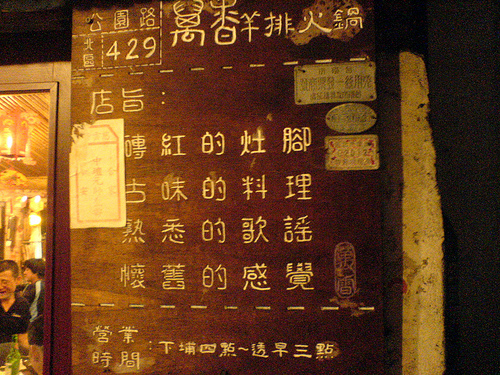 公園路
北區
429
萬香羊排火鍋
店旨：
磚紅的灶腳
古味的料理
熟悉的歌謠
懷舊的感覺
營業時間：下埔四點～透早三點